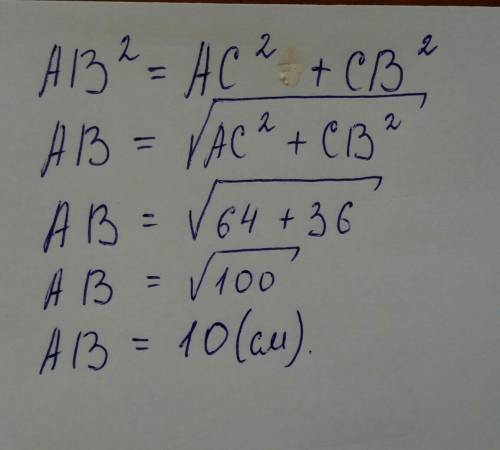 AB² = AC² + CB²
AB = √AC² + CB²
AB = √64 + 36
AB = √100
AB = 10 (см).